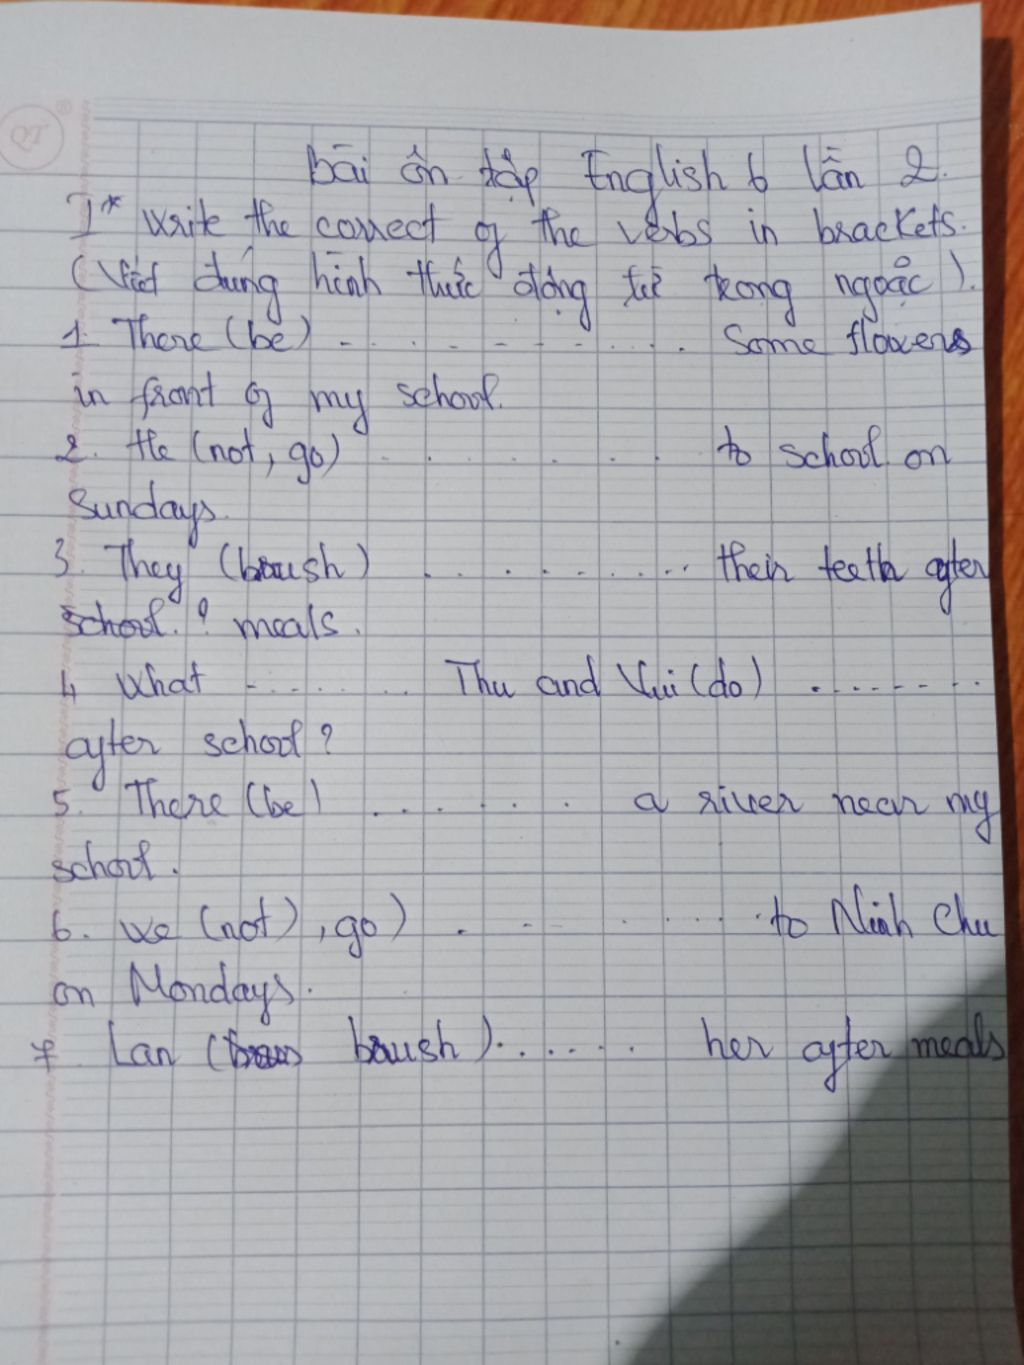 Bài ôn tập English 6 lần 2.
I* Write the correct of the verbs in brackets.
(Viết đúng hình thức động từ trong ngoặc).
1. There (be) - . . - . - . . . . . Some flowers
in front of my school.
2. He (not, go) . . . . . . . to school on
Sundays.
3. They (brush) . . . . . . . . . their teeth after
school. ? meals.
4 What - . . . . . . . Thu and Vui (do) . . . . - - .
after school?
5. There (be) . . . . . . a river near my
school.
6. We (not), go) . . . . . . . to Ninh Chu
on Mondays.
7. Lan ( brush ). . . . . . her after meals